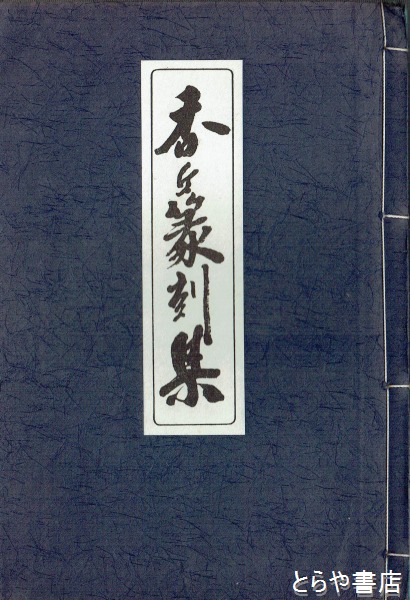 香兵篆刻集
とらや書店